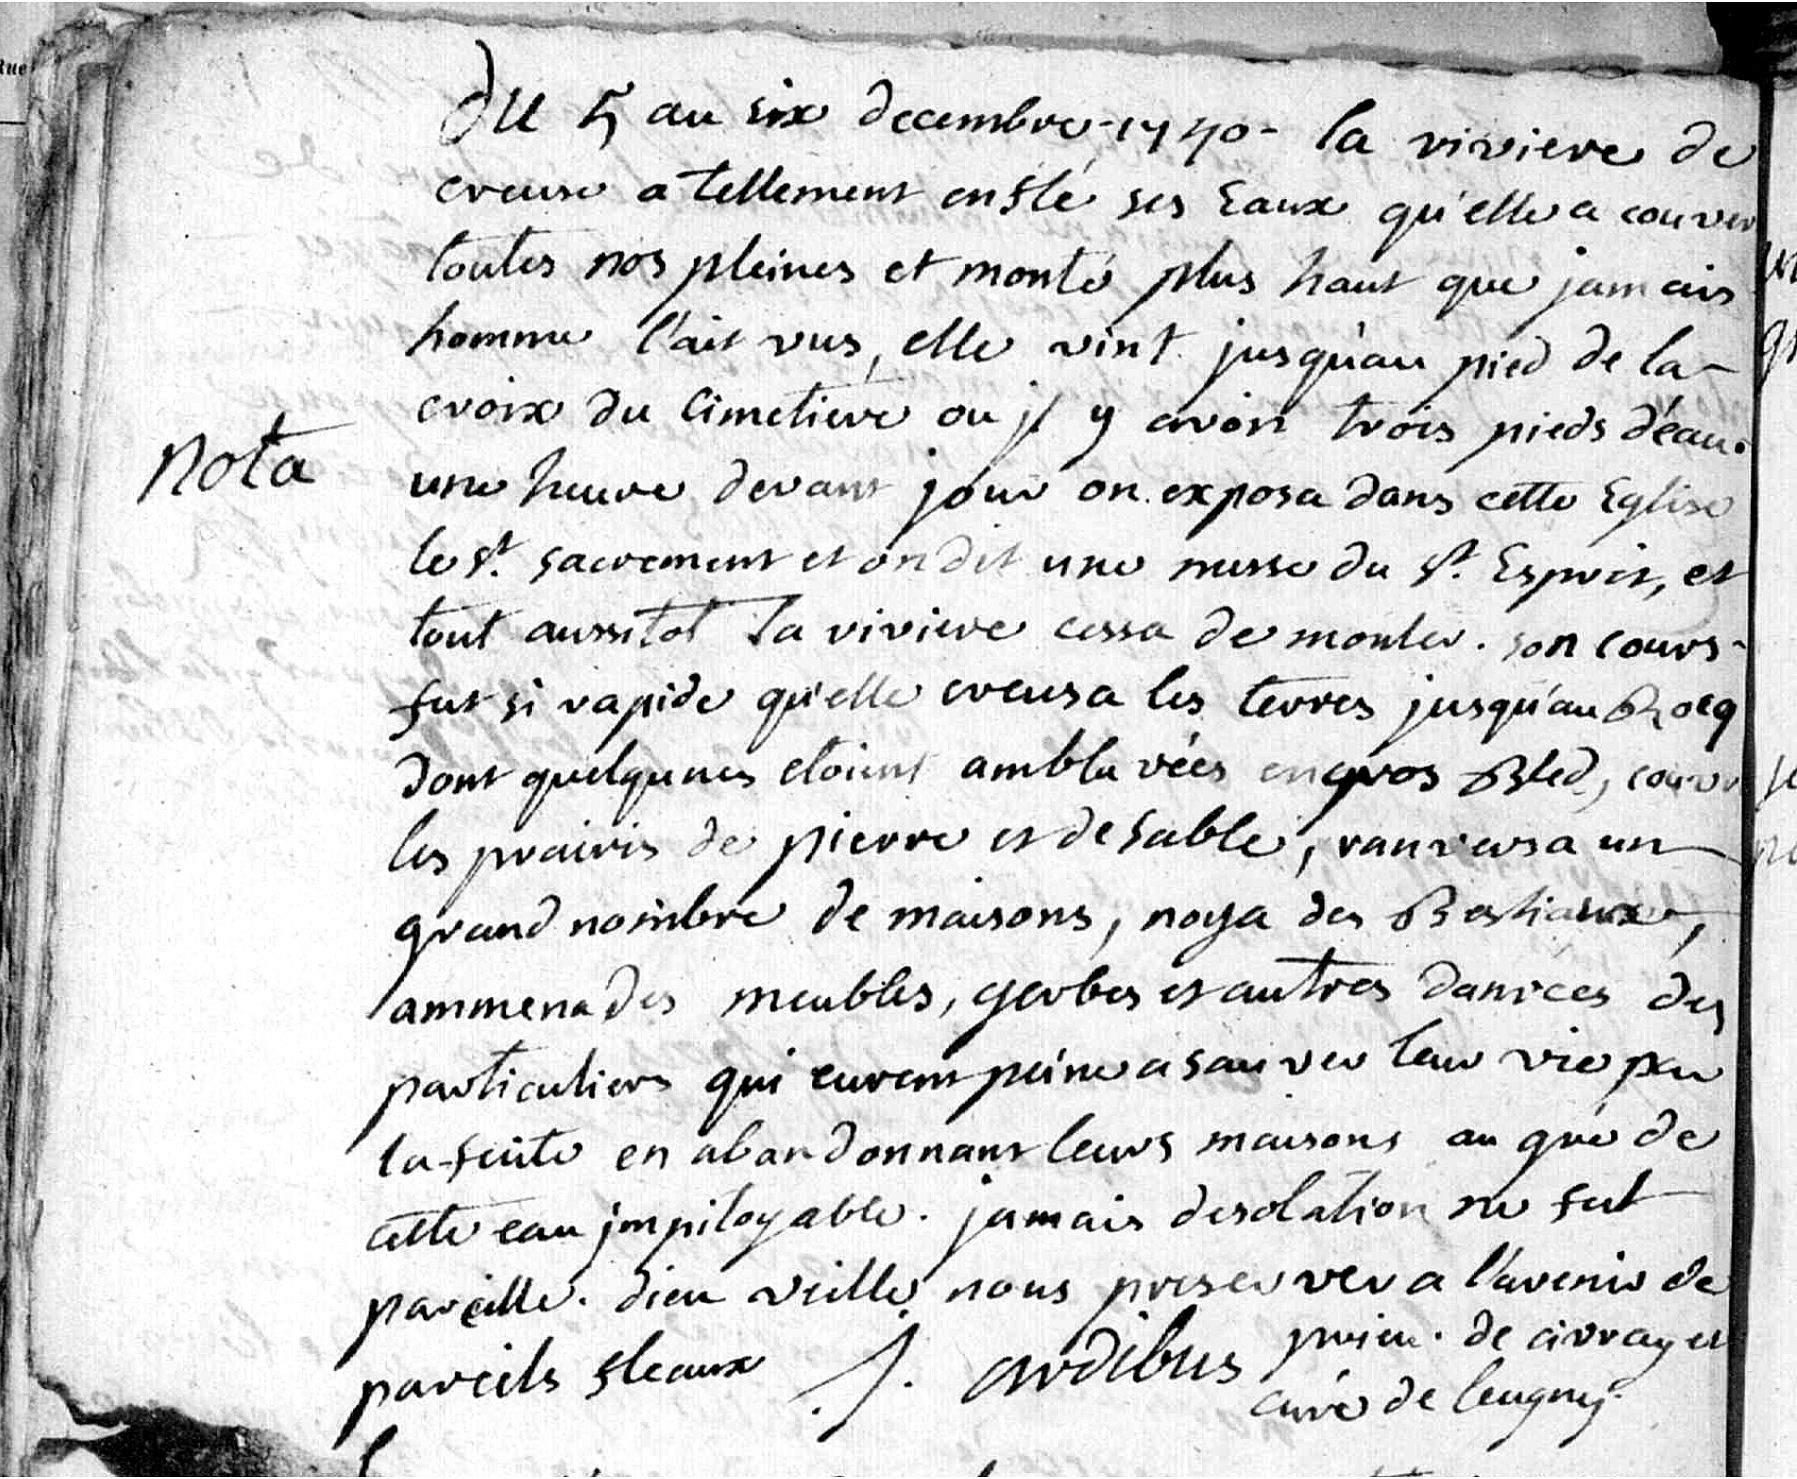 du 5 au six decembre 1740 la riviere de
creuse a tellement enflé ses Eaux qu'elle a couver
toutes nos pleines et monté plus haut que jamais
homme l'ait vus, elle vint jusqu'au pied de la
croix du Cimetiere ou jl y avoit trois pieds d'éau.
nota
une heure devant jour on exposa dans cette Eglise
le st. sacrement et on dit une messe du st. Esprit, et
tout aussitot la riviere cessa de monter. son cours
fut si rapide qu'elle creusa les terres jusqu'au Rocq
dont quelqunes etoient amblavées en gros Bled, couvr
les prairis de pierre et de sable, ranversa un
grand nombre de maisons, noya des Bestiaux,
ammena des meubles, gerbes et autres danrées des
particuliers qui eurent peine a sauver leur vie par
la fuite en abandonnant leurs maisons au gré de
cette eau jmpitoyable. jamais desolation ne fut
pareille. dieu veille nous preserver a l'avenir de
pareils fleaux J. ardibus prieu. de civray et
curé de leugny.